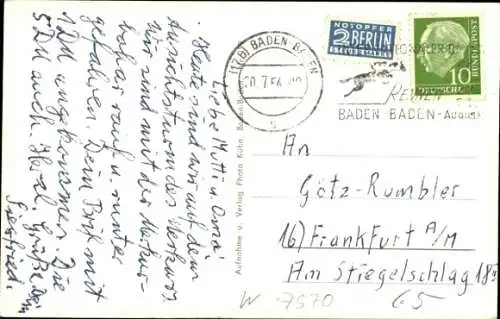 Liebe Mutti u. Oma!
Heute sind wir auf dem
Aussichtsturm des Merkurs.
Wir sind mit der Merkur-
bahn rauf u. runter
gefahren. Dein Brief mit
1 DM angekommen. Die
5 DM auch. Herzl. Grüße Dein
Siegfried.
Aufnahme u. Verlag Photo Kühn Baden-Baden
(17b) BADEN-BADEN
NOTOPFER
2 BERLIN
STEUERMARKE
DEUTSCHE BUNDESPOST
10
RENNEN
BADEN-BADEN-August
An
Götz-Rumbler
16) Frankfurt A/M
Am Stiegelschlag 18
W-7570
65